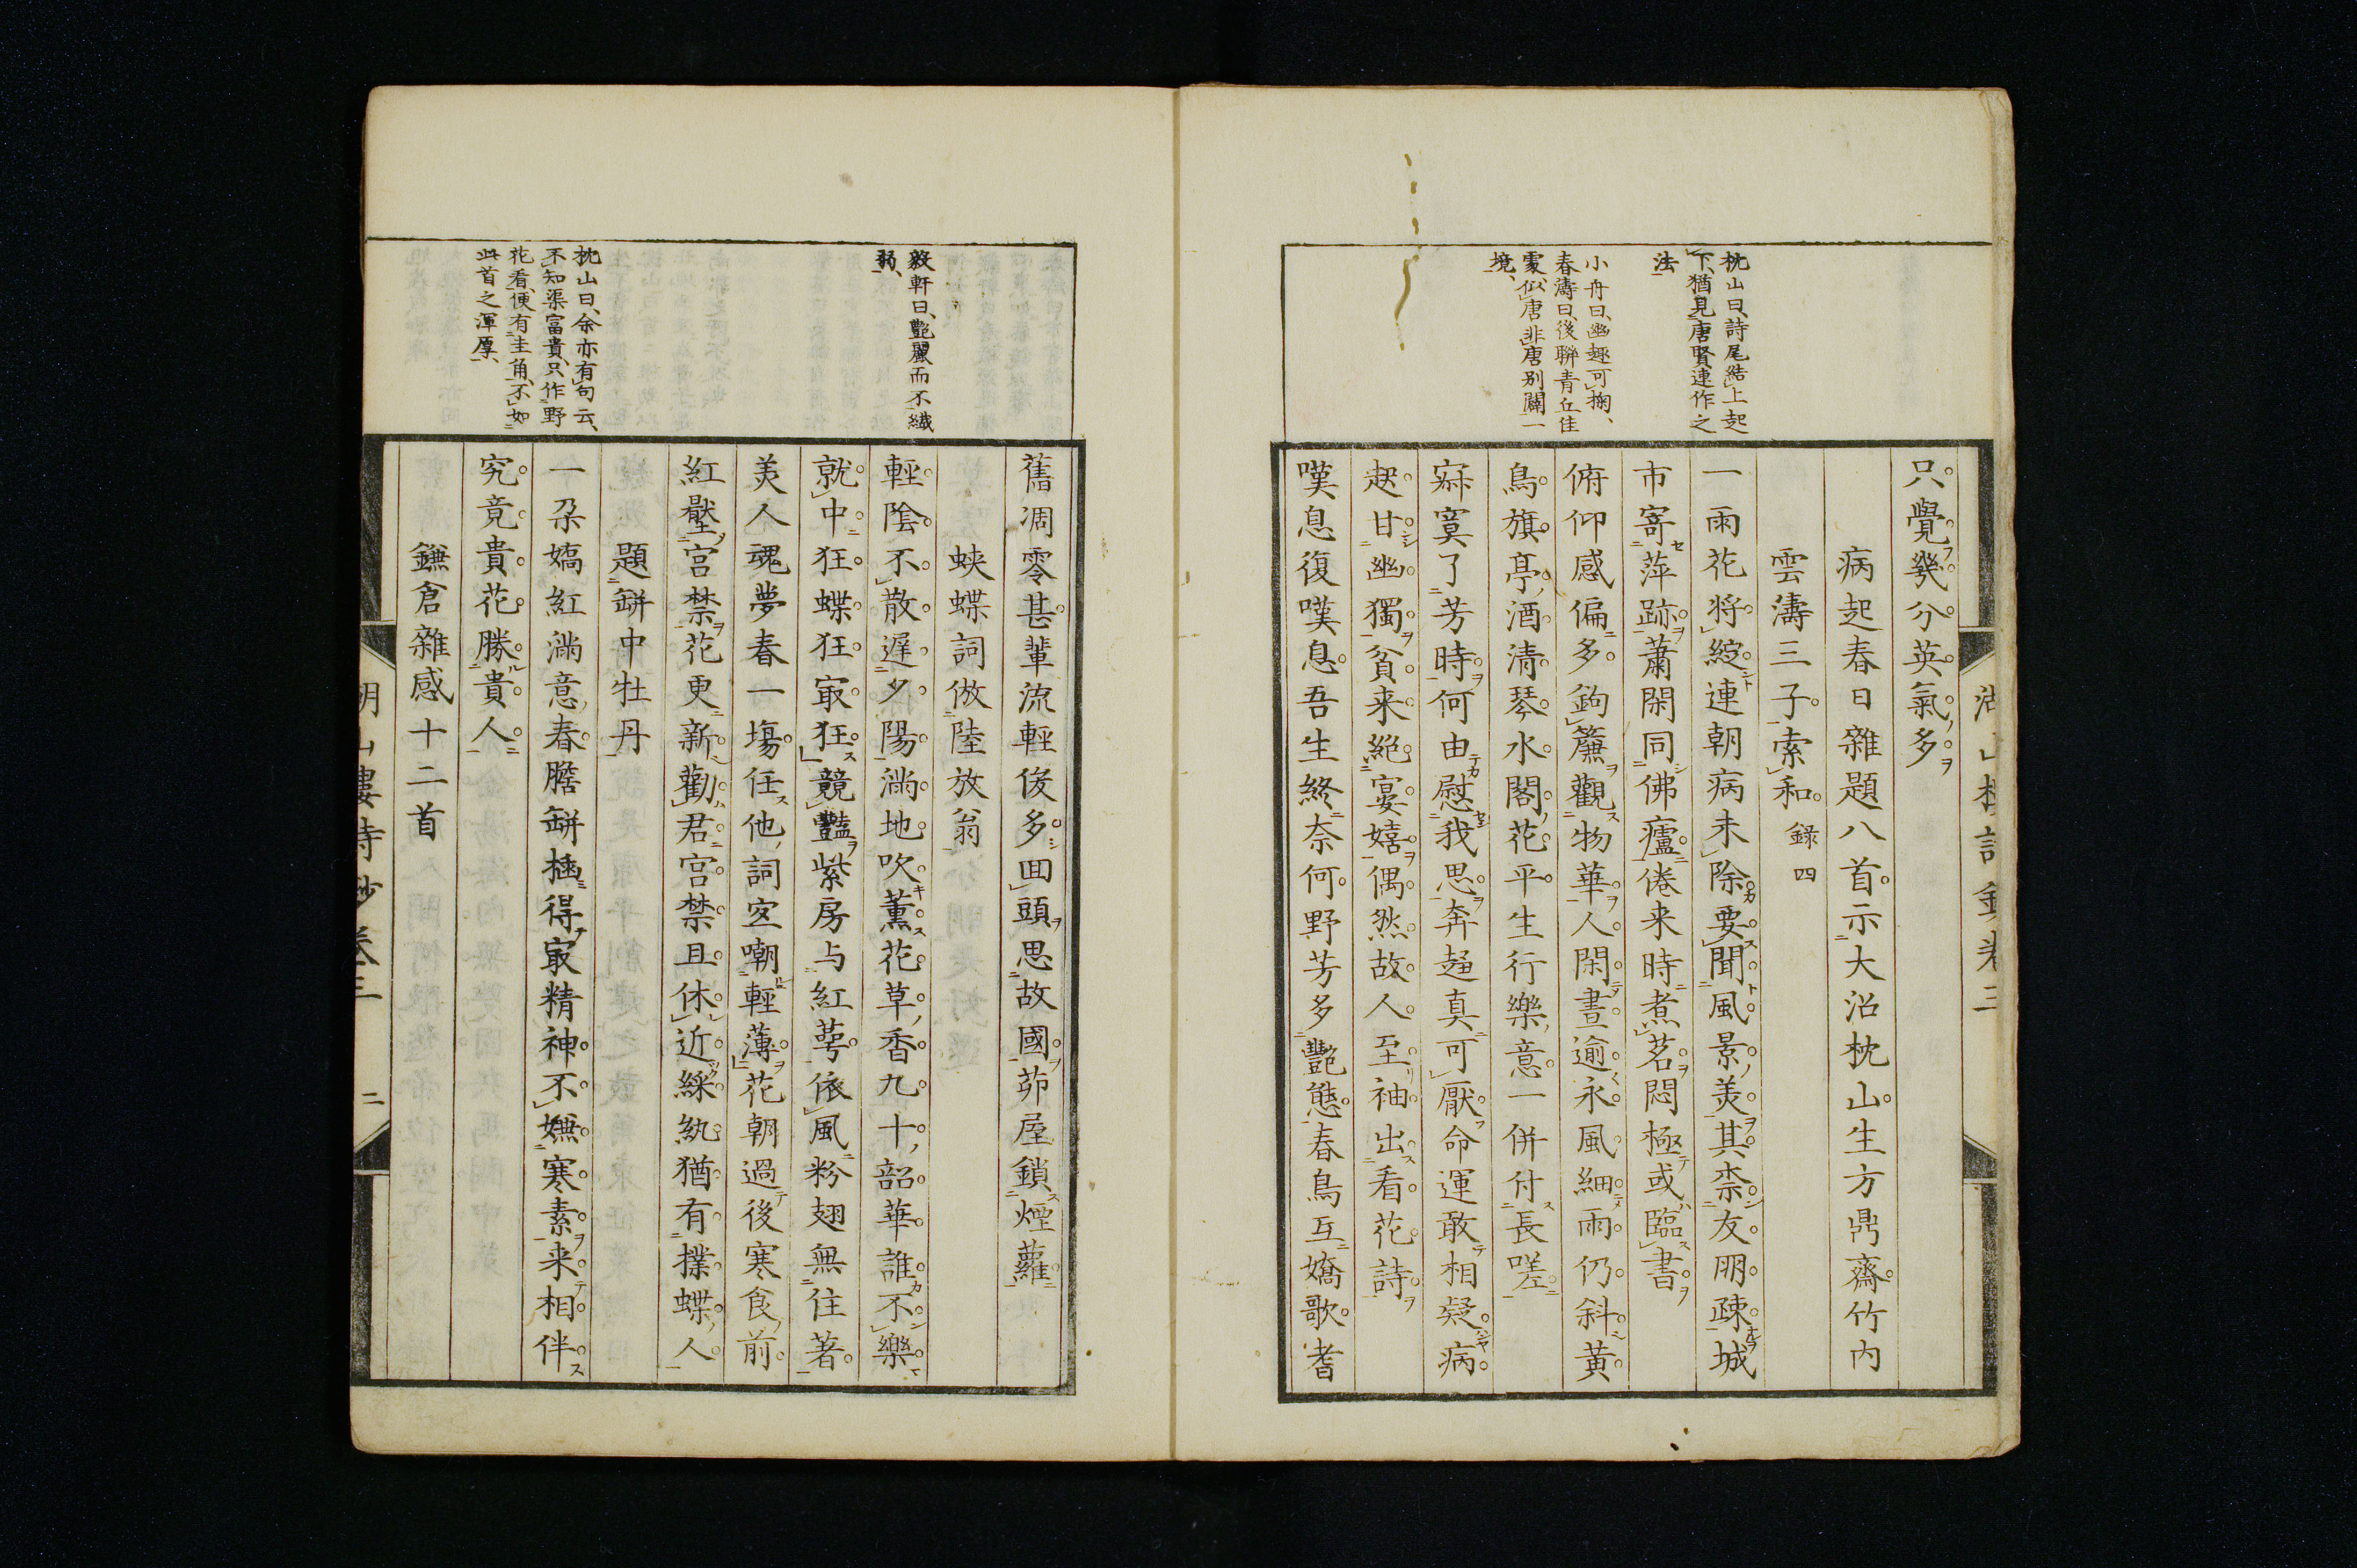 湖山樓詩鈔卷三
枕山曰、詩尾結上起
下、猶見唐賢連作之
法
小舟曰、幽趣可掬、
春濤曰、後聯青丘佳
處、似唐非唐別闢一
境、
只覺幾分英氣多
病起春日雜題八首示大沼枕山生方鼎齋竹內
雲濤三子索和 錄四
一雨花將綻連朝病未除要聞風景美其柰友朋疎城
市寄萍跡蕭閑同佛廬倦来時煮茗悶極或臨書
俯仰感偏多鉤簾觀物華人閑晝逾永風細雨仍斜黃
鳥旗亭酒清琴水閣花平生行樂意一併付長嗟
寂寞了芳時何由慰我思奔趍真可厭命運敢相疑病
起甘幽獨貧来絕宴嬉偶然故人至袖出看花詩
嘆息復嘆息吾生終奈何野芳多艷態春鳥互嬌歌耆
敎軒曰、艷麗而不纖
弱、
枕山曰、余亦有句云、
不知渠富貴、只作野
花看、便有圭角、不如
此首之渾厚、
舊凋零甚輩流輕俊多回頭思故國茆屋鎖煙蘿
蛺蝶詞倣陸放翁
輕陰不散遲夕陽滿地吹薰花草香九十韶華誰不樂
就中狂蝶狂㝡狂競豔紫房与紅萼依風粉翅無住著
美人魂夢春一場任他詞客嘲輕薄花朝過後寒食前
紅壓宮禁花更新勸君宮禁且休近綵紈猶有撲蝶人
題缾中牡丹
一朶嬌紅滿意春膽缾插得㝡精神不嫌寒素来相伴
究竟貴花勝貴人
鎌倉雜感十二首
湖山樓詩鈔卷三 二